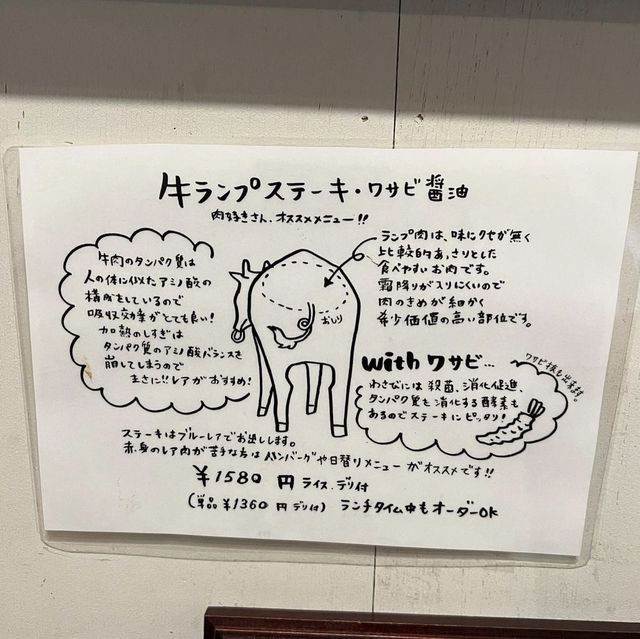 牛ランプステーキ・ワサビ醤油
肉好きさん、オススメメニュー!!
牛肉のタンパク質は
人の体に似たアミノ酸の
構成をしているので
吸収効率がとても良い!
加熱のしすぎは
タンパク質のアミノ酸バランスを
崩してしまうので
まさに!!レアがおすすめ!
ランプ肉は、味にクセが無く
比較的あっさりとした
食べやすいお肉です。
霜降りが入りにくいので
肉のきめが細かく
希少価値の高い部位です。
おしり
withワサビ…
ワサビ抜も出来ます。
わさびには 殺菌、消化促進、
タンパク質を消化する酵素も
あるのでステーキにピッタリ!
ステーキはブルーレアでお出しします。
赤身のレア肉が苦手な方はハンバーグや日替りメニューがオススメです!!
¥1580円 ライス、デリ付
(単品¥1360円デリ付) ランチタイム中もオーダーOK